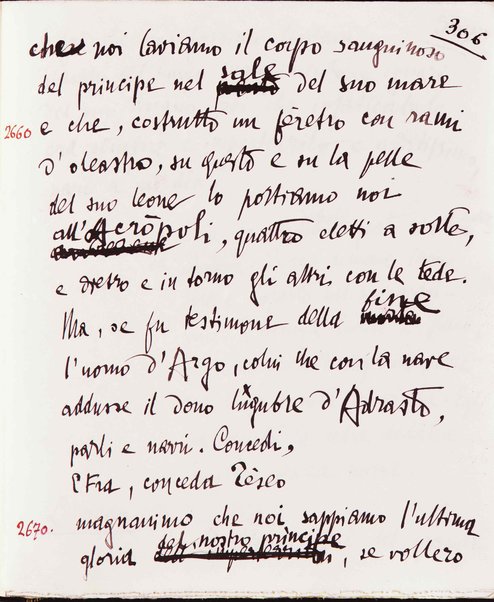 306
che noi laviamo il corpo sanguinoso
del principe nel sale del suo mare
2660 e che, costrutto un fèretro con rami
d'oleastro, su questo e su la pelle
del suo leone lo portiamo noi
all'Acròpoli, quattro eletti a sorte,
e dietro e in torno gli altri con le tede.
Ma, se fu testimone della fine
l'uomo d'Argo, colui che con la nave
addusse il dono lùgubre d'Adrasto,
parli e narri. Concedi,
Etra, conceda Tèseo
2670. magnanimo che noi sappiamo l'ultima
gloria del nostro principe, se vollero